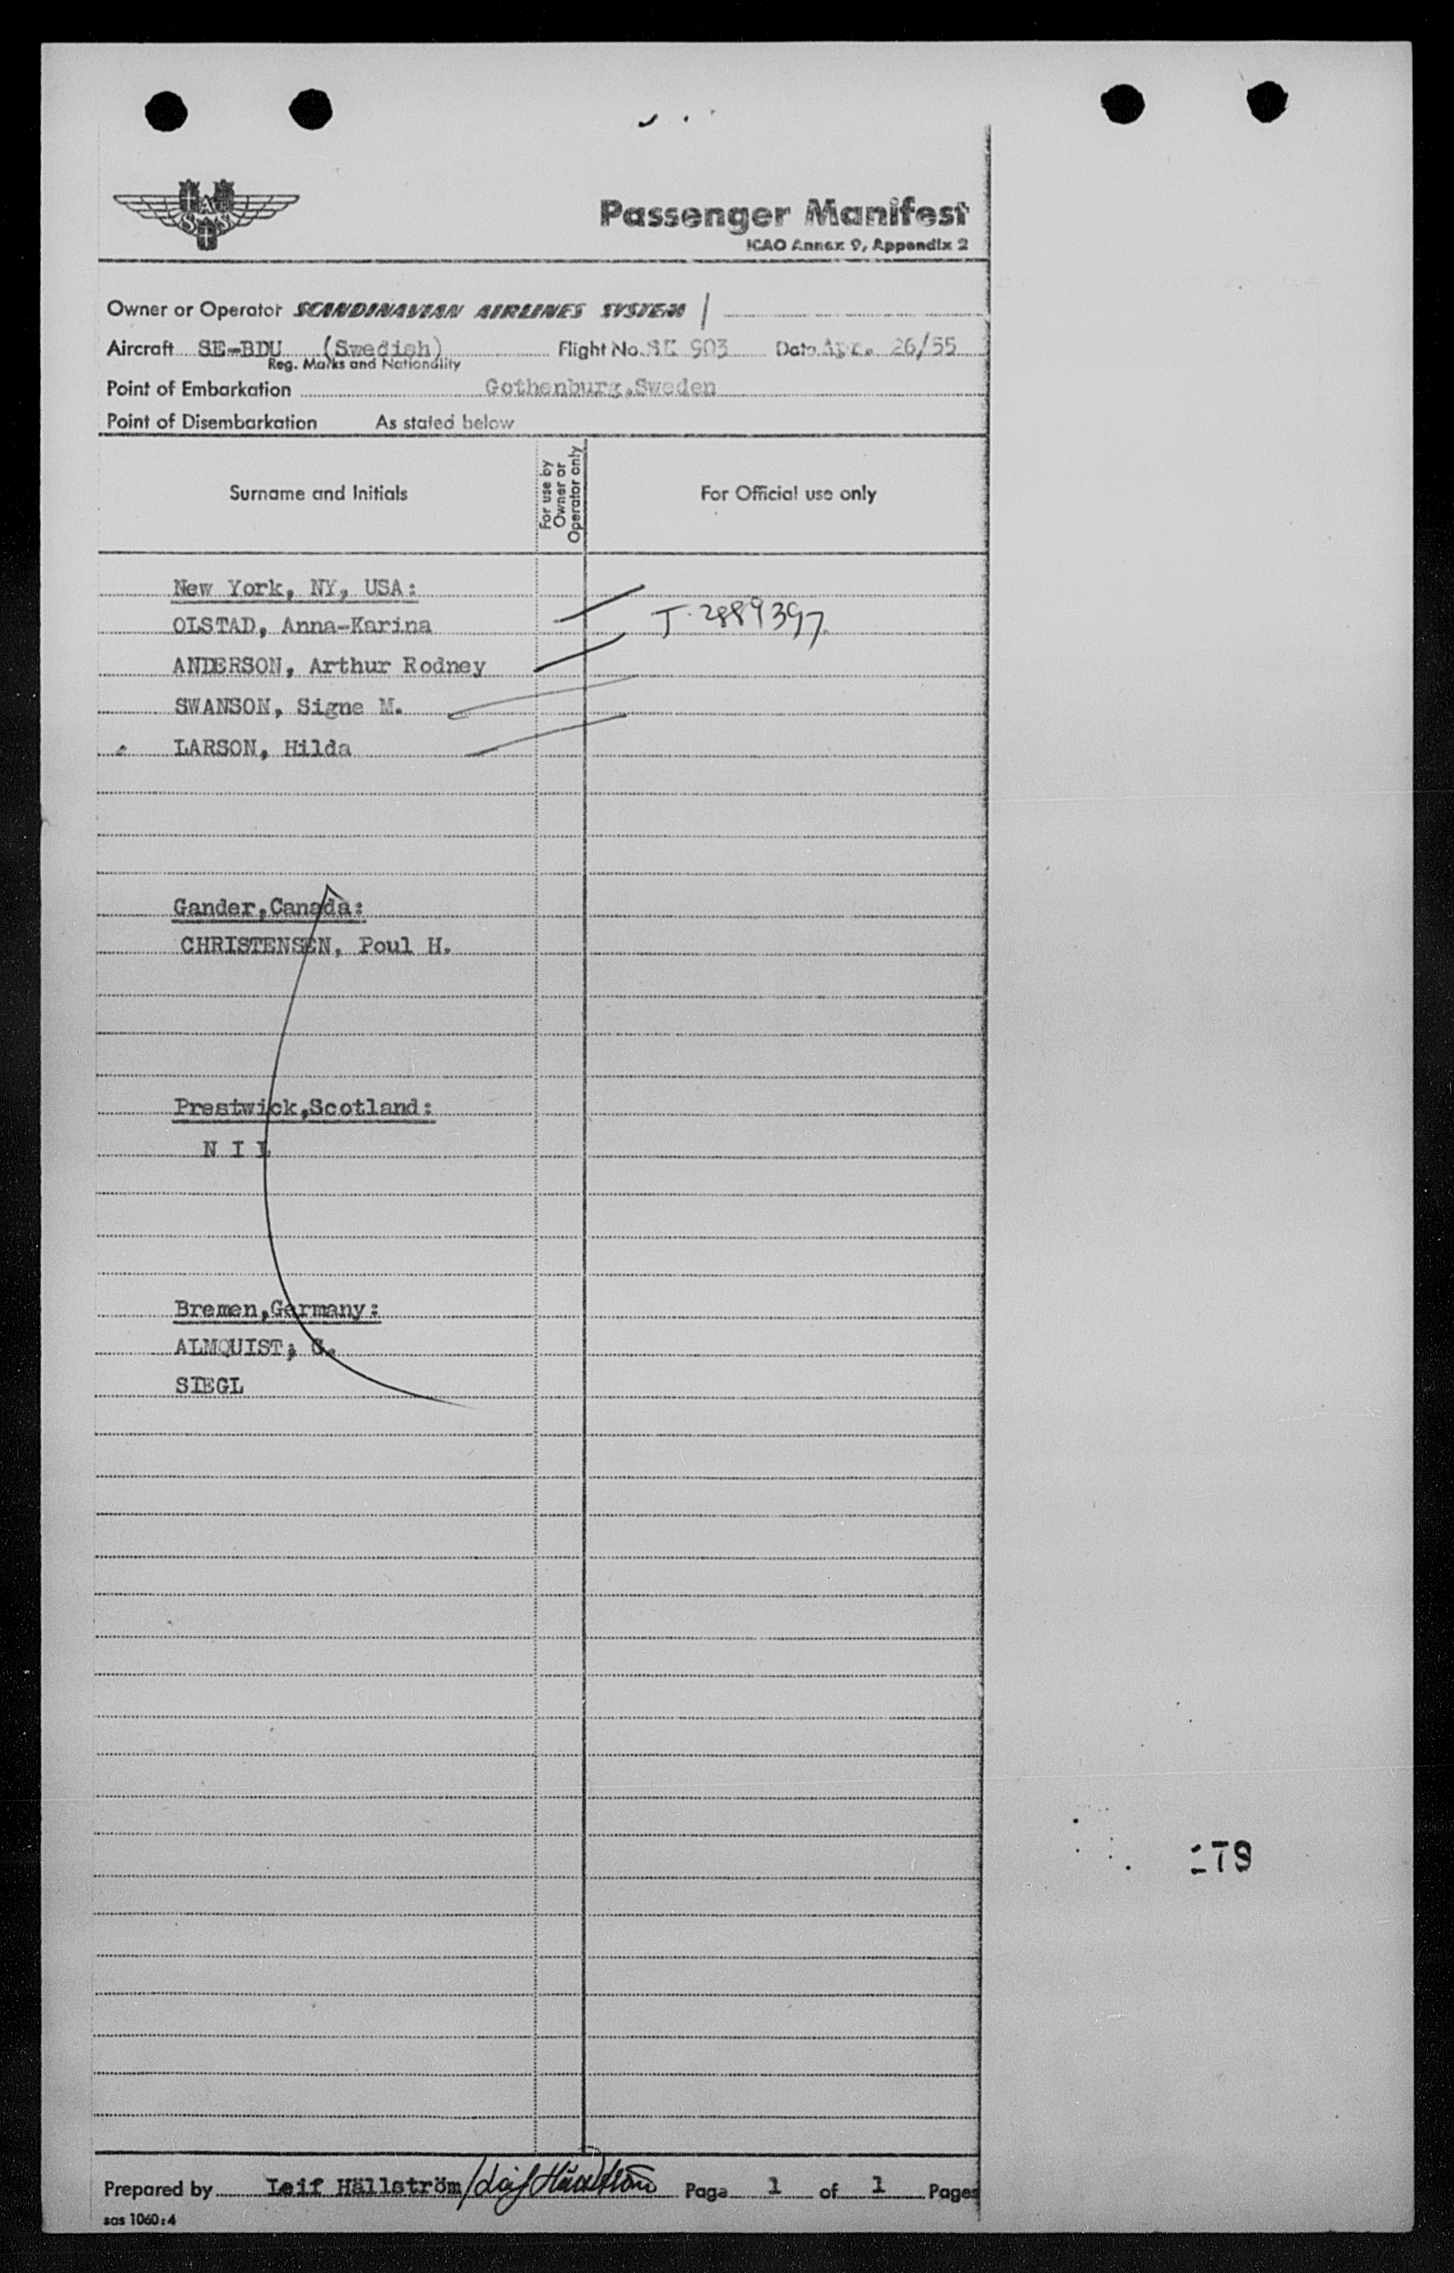 SAS
Passenger Manifest
ICAO Annex 9, Appendix 2
Owner or Operator SCANDINAVIAN AIRLINES SYSTEM
Aircraft SE-BDU (Swedish) Flight No. SK 903 Date Apr. 26/55
Reg. Marks and Nationality
Point of Embarkation Gothenburg,Sweden
Point of Disembarkation As stated below
Surname and Initials For use by Owner or Operator only For Official use only
New York, NY, USA:
OLSTAD, Anna-Karina T-2889397
ANDERSON, Arthur Rodney
SWANSON, Signe M.
LARSON, Hilda
Gander,Canada:
CHRISTENSEN, Poul H.
Prestwick,Scotland:
N I L
Bremen,Germany:
ALMQUIST, G.
SIEGL
179
Prepared by Leif Hällström/Leif Hällström Page 1 of 1 Pages
sas 1060:4